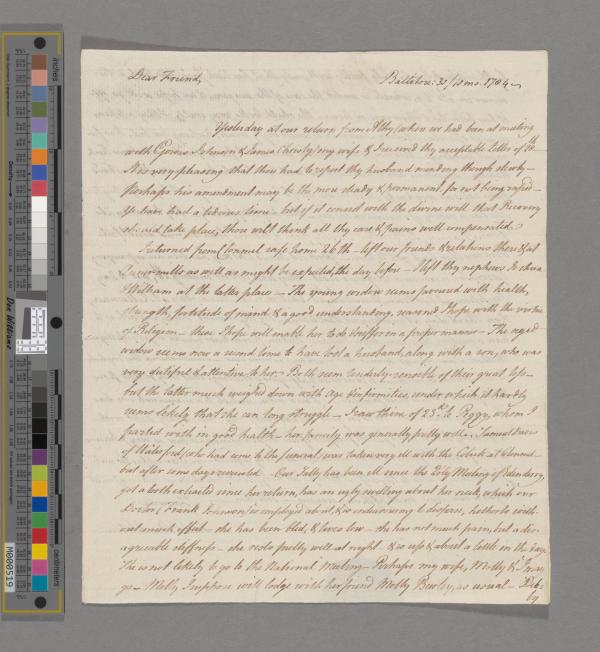 Dear Friend,
Ballitore: 31/10 mo. 1784
Yesterday at our return from Athy (where we had been at meeting
with & James Christy) my wife & I received thy acceptable letter of
It is very pleasing that thou had to report thy husband mending though slowly —
Perhaps his amendment may be the more steady & permanent for not being rapid —
Ye have had a tedious time — but if it consist with the divine will that Recovery
should take place, thou wilt think all thy care & pains well compensated.
I returned from Clonmel safe home 26th — left our friends & relations there & at
as well as might be expected, the day before — I left thy nephews Joshua &
William at the latter place — The young widow seems favoured with health,
strength, fortitude of mind & a good understanding, seasoned I hope with the virtue
of Religion — these I hope will enable her to do & suffer in a proper manner — The aged
widow seems now a second time to have lost a husband, along with a son, who was
very dutiful & attentive to her — Both seem tenderly sensible of their great loss —
but the latter much weighed down with age & infirmities, under which it hardly
seems likely that she can long struggle — I saw thine of 23rd to Peggy, whom I
parted with in good health — her family was generally pretty well — Samuel
of Waterford, who had come to the funeral was taken very ill with the Colick at Clonmel
but after some days recruited — Our Sally has been ill since the Qly Meeting of Edenderry,
got a tooth extracted since her return, has an ugly swelling about her neck, which our
Doctor, (Frank Johnson) is employed about, & is endeavouring to disperse, hitherto with-
out much effect — she has been bled, & lives low — she has not much pain, but a dis-
agreeable stiffness — she rests pretty well at night & is up & about a little in the day.
She is not likely to go to the National Meeting — Perhaps my wife, Molly & I may
go — Molly will lodge with her friend Molly as usual — Deb-
by
inches
centimeters
Don Williams
M000519